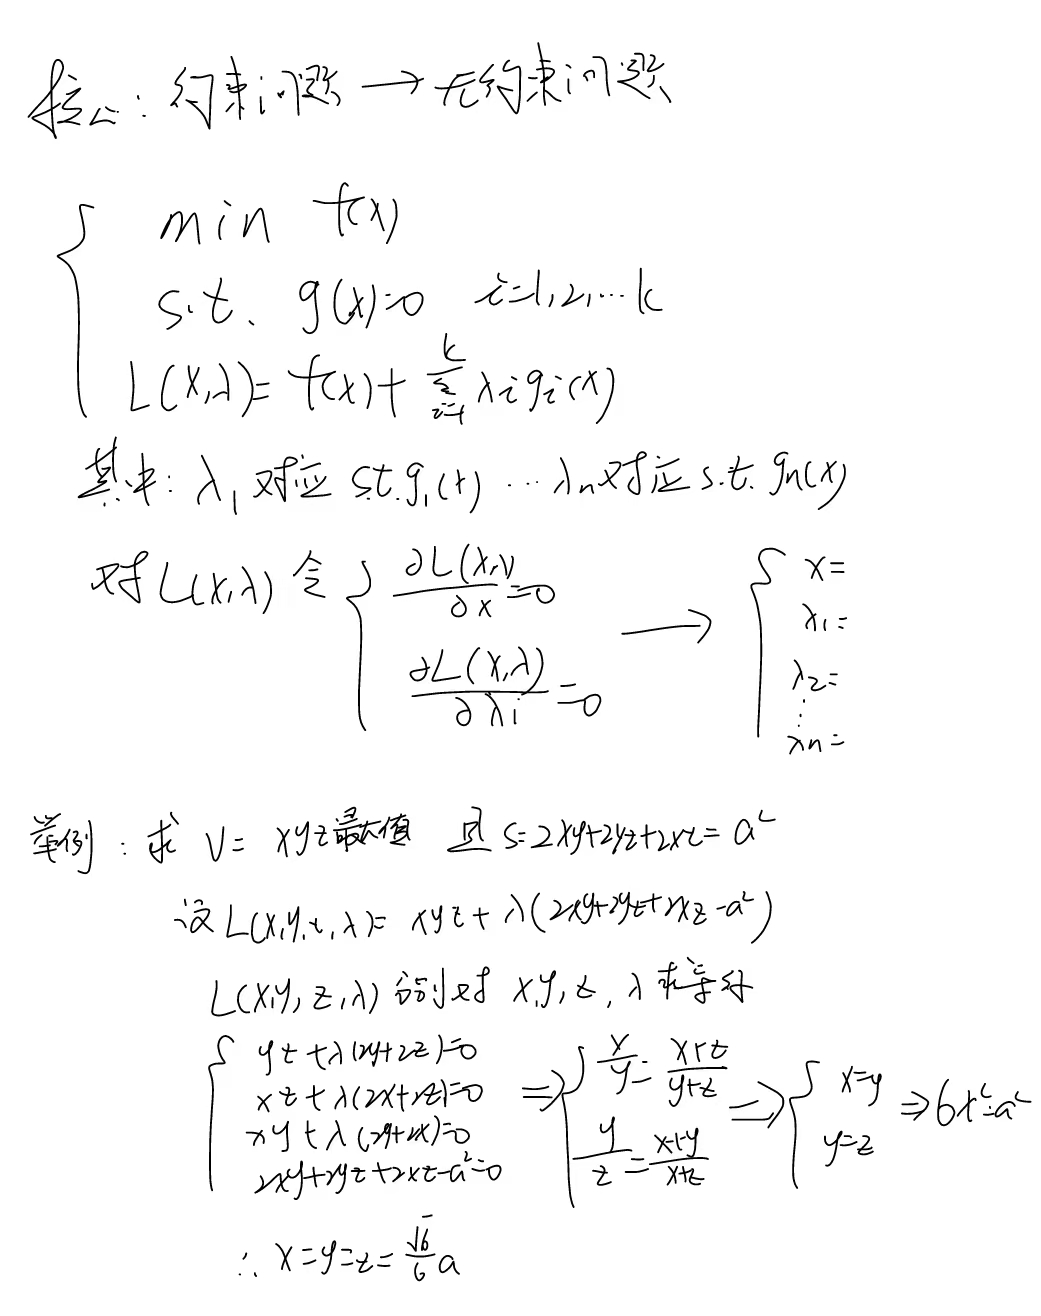 核心: 约束问题 → 无约束问题
{ min f(x)
s.t. g(x)=0 i=1,2,…k
L(x,λ)= f(x)+ \sum_{i=1}^{k} λi gi(x)
其中: λ₁对应 s.t. g₁(x) … λn对应 s.t. gn(x)
对 L(x,λ) 令 { ∂L(x,λ)/∂x =0 → { x=
λ₁=
∂L(x,λ)/∂λi =0 λ₂=
⋮
λn=
举例: 求 V= xyz最大值 且 S=2xy+2yz+2xz= a²
设 L(x,y,z,λ)= xyz+ λ(2xy+2yz+2xz-a²)
L(x,y,z,λ) 分别对 x,y,z,λ 求导得
{ yz+λ(2y+2z)=0
xz+λ(2x+2z)=0 ⇒ { x/y = (x+z)/(y+z) ⇒ { x=y ⇒ 6x²=a²
xy+λ(2y+2x)=0 y/z = (x+y)/(x+z) y=z
2xy+2yz+2xz-a²=0
∴ x=y=z= \frac{√6}{6} a